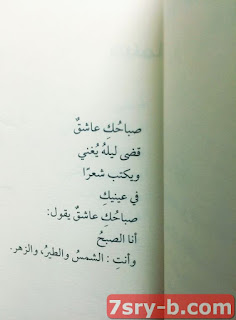 صباحُكِ عاشقٌ
قضى ليلهُ يُغني
ويكتب شعرًا
في عينيكِ
صباحُكِ عاشقٌ يقول:
أنا الصبحُ
وأنتِ : الشمسُ والطيرُ، والزهر.
7sry-b.com